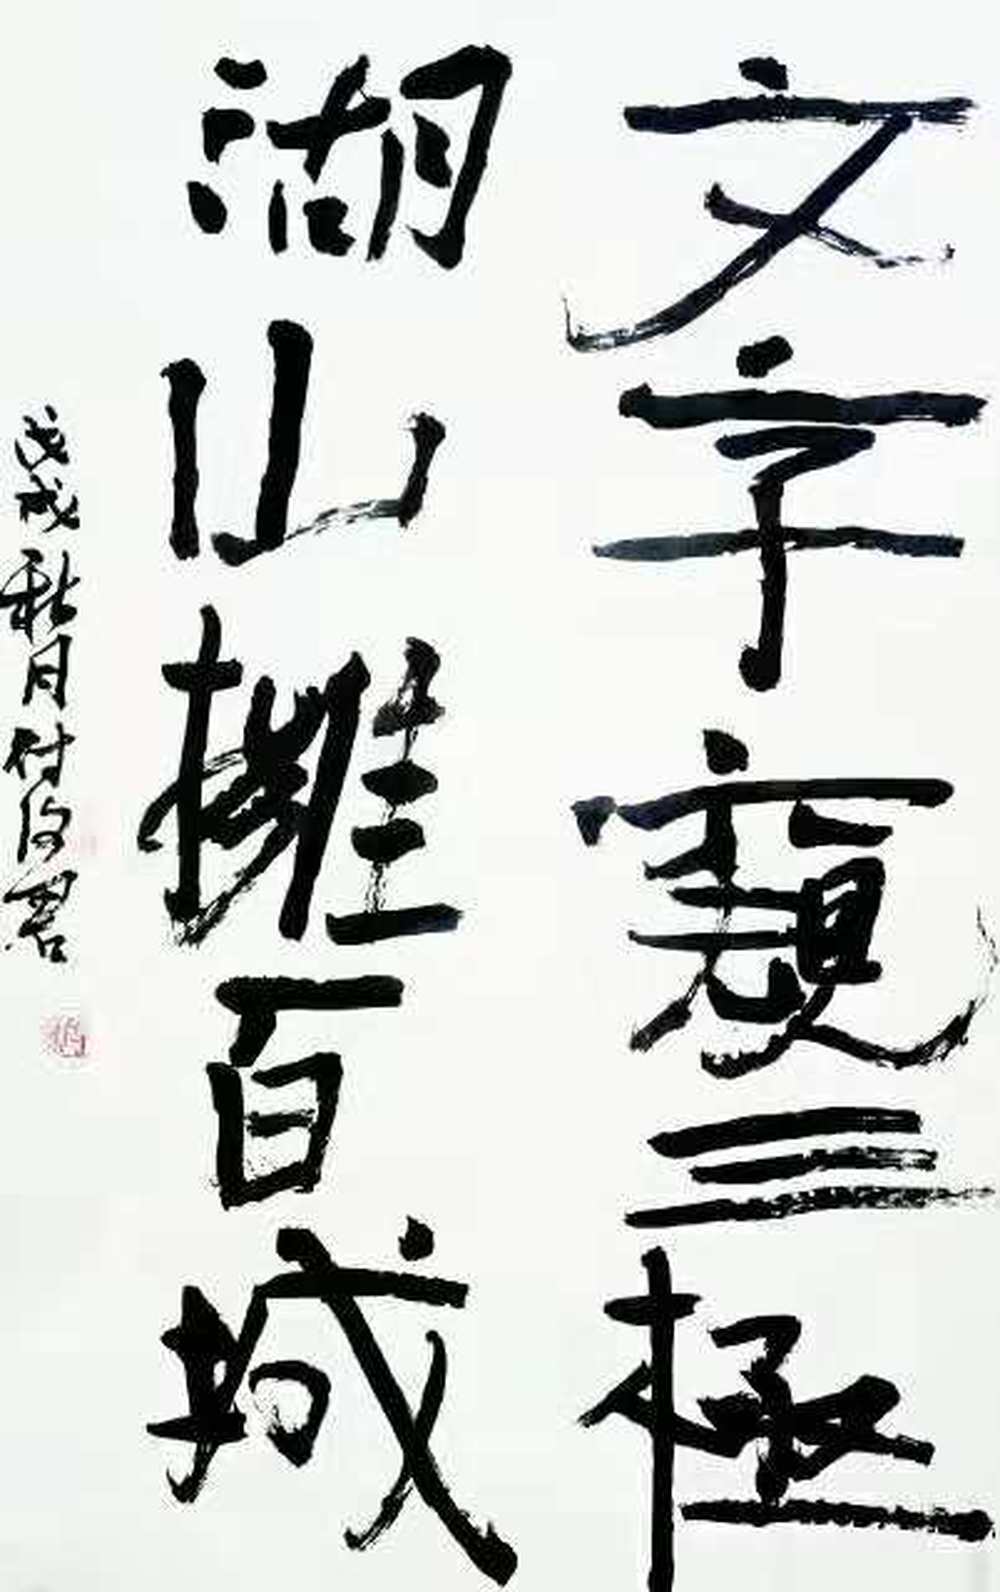 文字窺三極
湖山擁百城
戊戌秋月付俊君